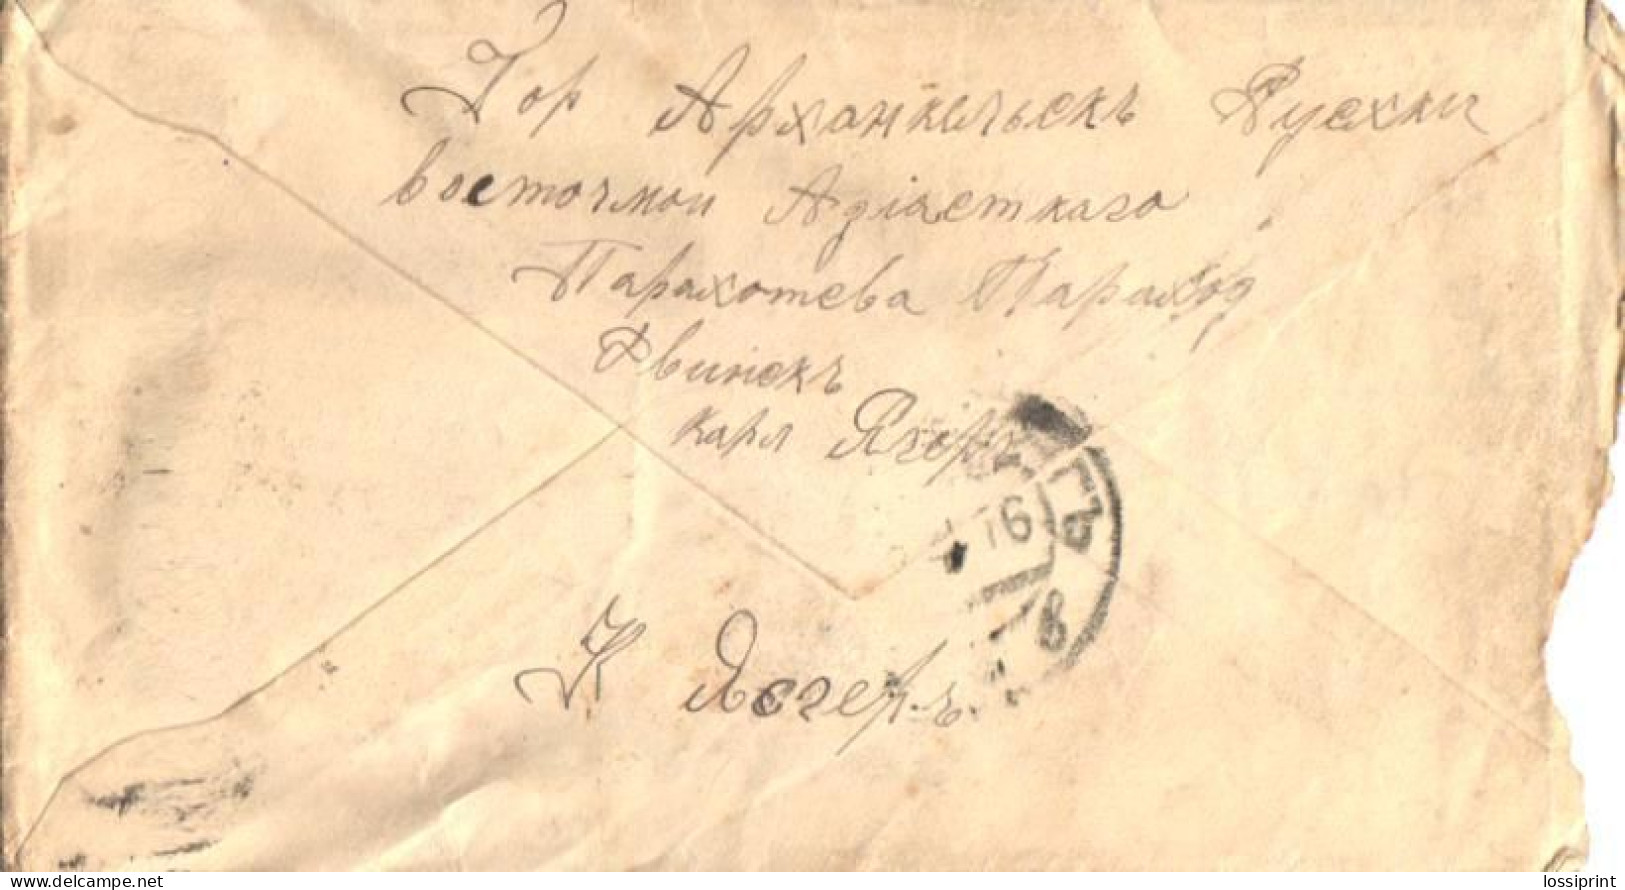 Гор Арханкельскъ Русхки
восточнои Адіасткаго
Парахотсва Параход
Двинскъ
Карл Ягерь
16
ГЪ
8
К Яегеръ
https://www.delcampe.net
lossiprint